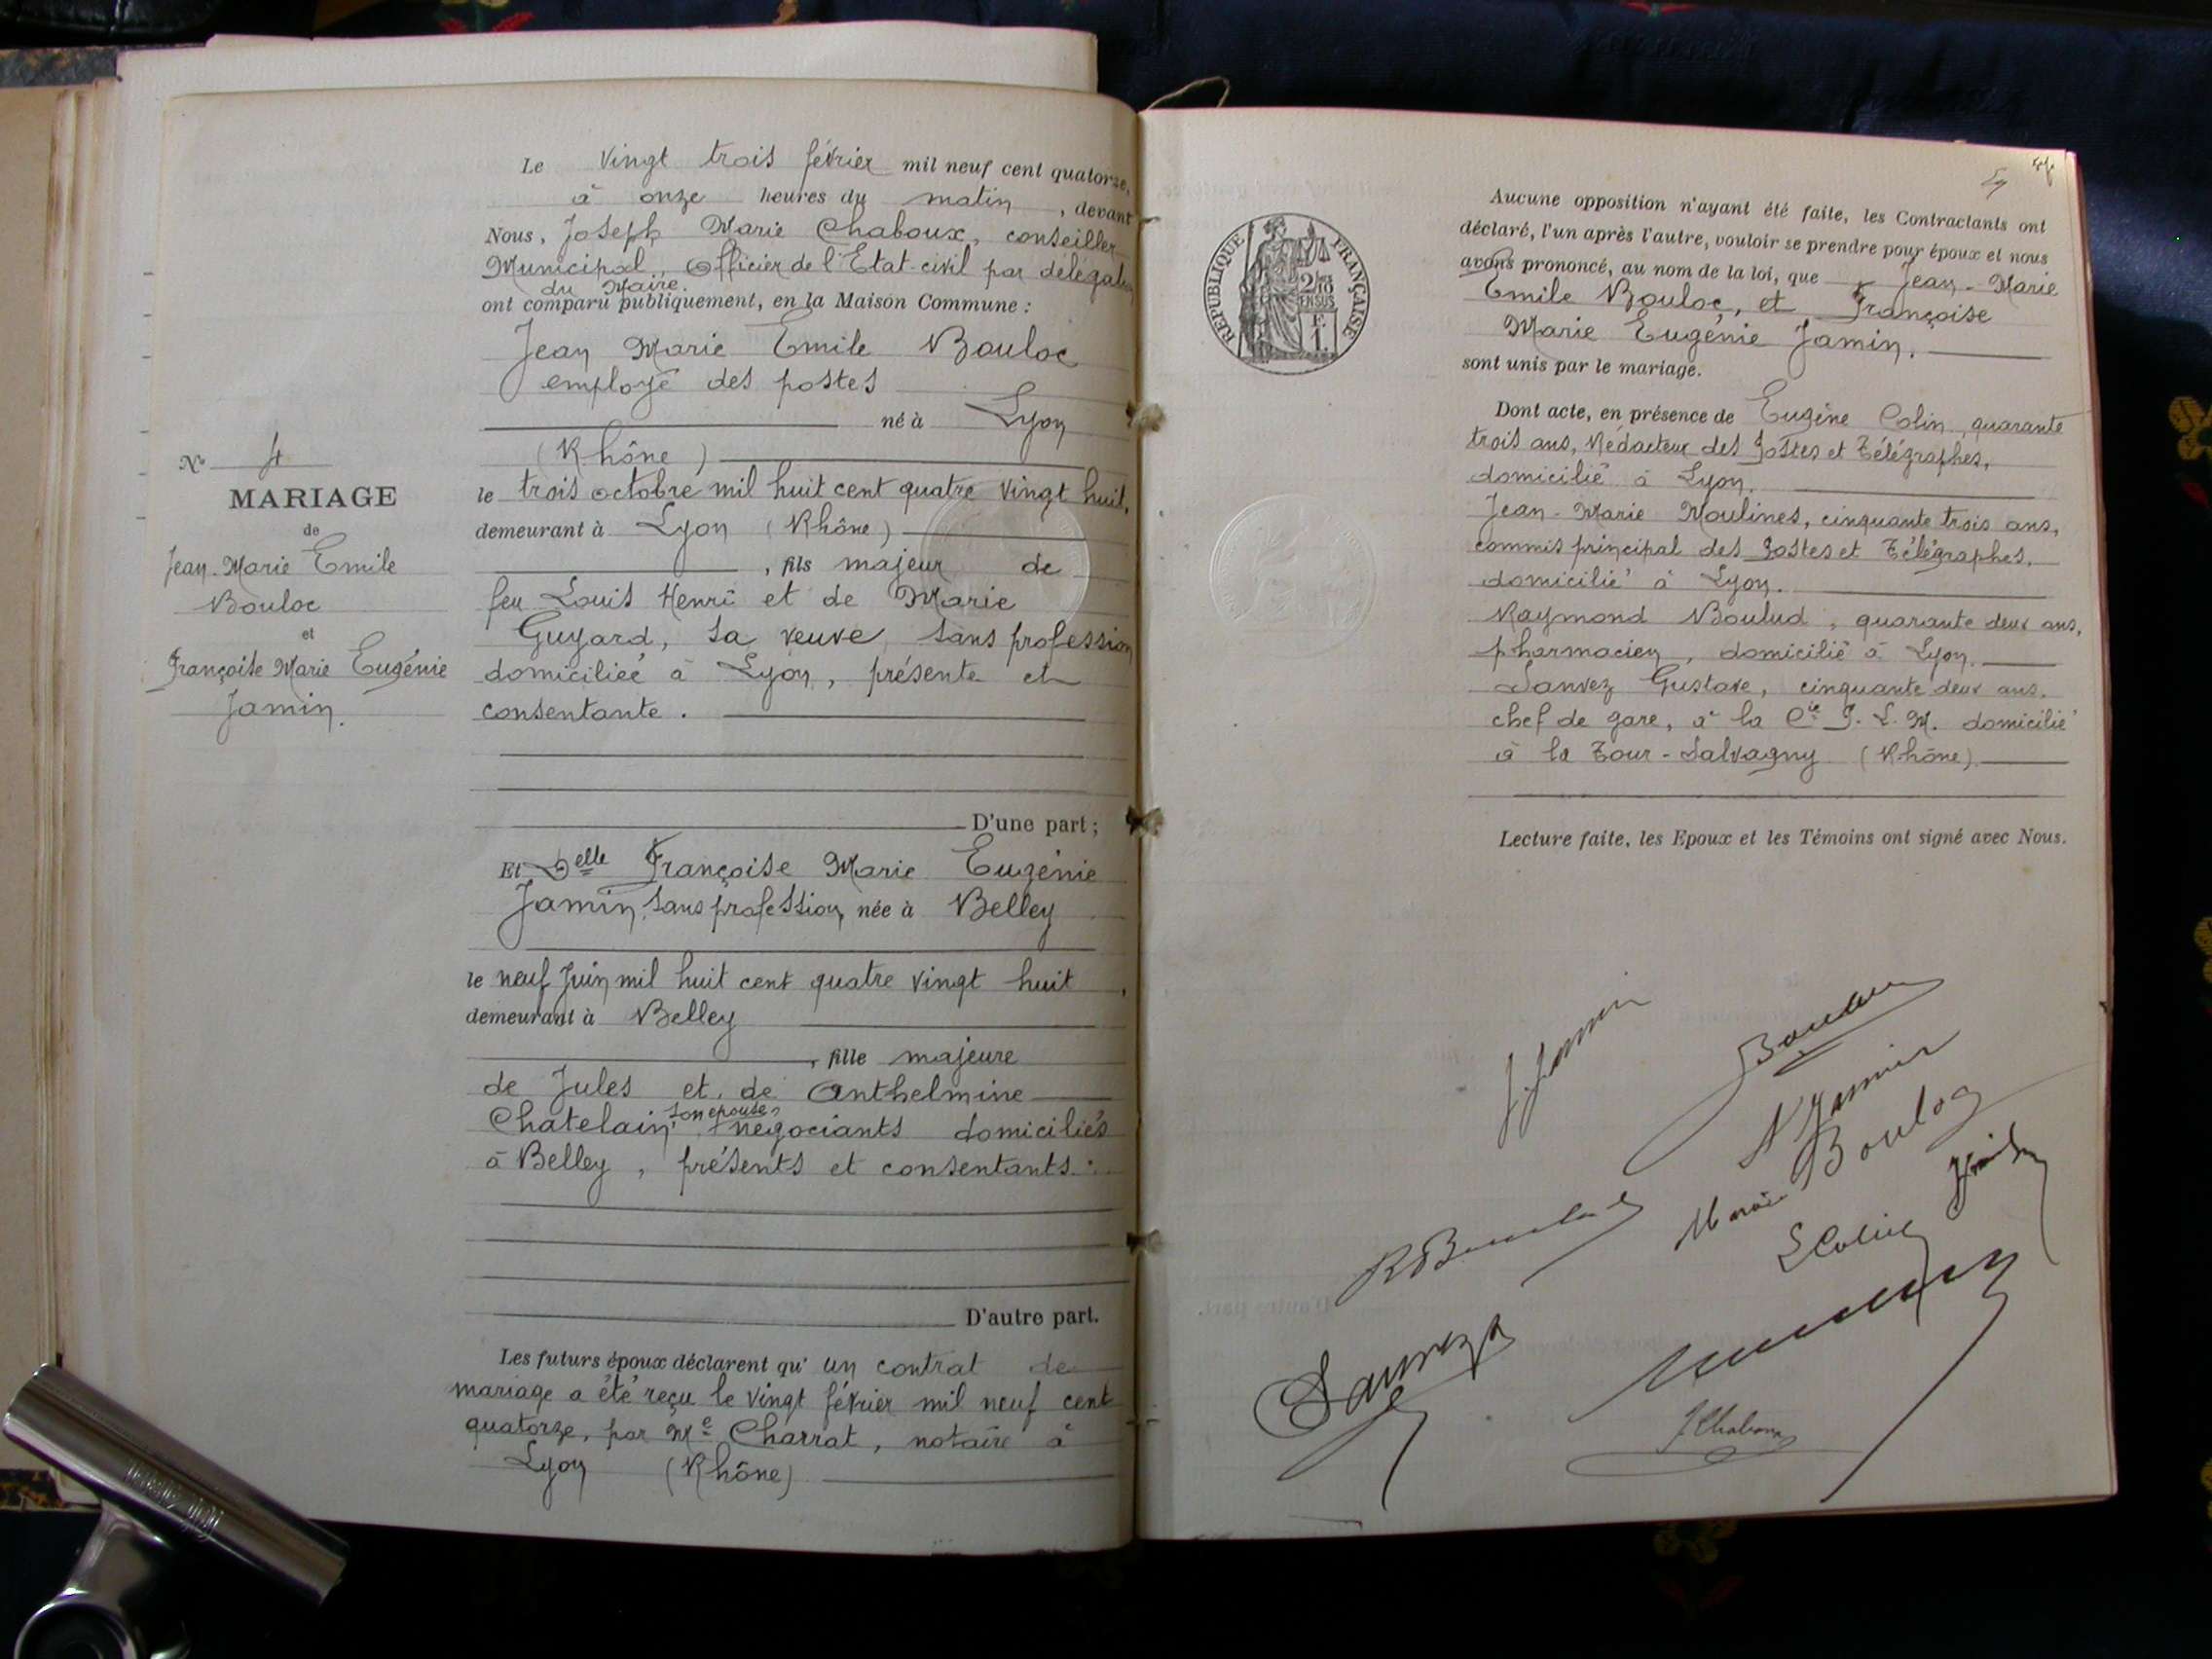 N° 4
MARIAGE
de
Jean-Marie Emile
Bouloc
et
Françoise Marie Eugénie
Jamin.
Le vingt trois février mil neuf cent quatorze,
à onze heures du matin, devant
Nous, Joseph Marie Chaboux, conseiller
Municipal, Officier de l'Etat-civil par délégation
du Maire.
ont comparu publiquement, en la Maison Commune :
Jean Marie Emile Bouloc
employé des postes
né à Lyon
(Rhône)
le trois octobre mil huit cent quatre vingt huit,
demeurant à Lyon (Rhône)
, fils majeur de
feu Louis Henri et de Marie
Guyard, sa veuve, sans profession
domiciliée à Lyon, présente et
consentante.
D'une part ;
Et Delle Françoise Marie Eugénie
Jamin, sans profession, née à Belley
le neuf Juin mil huit cent quatre vingt huit,
demeurant à Belley
, fille majeure
de Jules et de Anthelmine
Chatelain, son épouse, négociants domiciliés
à Belley, présents et consentants.
D'autre part.
Les futurs époux déclarent qu'un contrat de
mariage a été reçu le vingt février mil neuf cent
quatorze, par Me Charrat, notaire à
Lyon (Rhône)
REPUBLIQUE FRANÇAISE
2/10
EN SUS
F.
1.
Aucune opposition n'ayant été faite, les Contractants ont
déclaré, l'un après l'autre, vouloir se prendre pour époux et nous
avons prononcé, au nom de la loi, que Jean-Marie
Emile Bouloc, et Françoise
Marie Eugénie Jamin.
sont unis par le mariage.
Dont acte, en présence de Eugène Colin, quarante
trois ans, Rédacteur des Postes et Télégraphes,
domicilié à Lyon.
Jean-Marie Moulines, cinquante trois ans,
commis principal des Postes et Télégraphes,
domicilié à Lyon.
Raymond Boulud, quarante deux ans,
pharmacien, domicilié à Lyon.
Sanvez Gustave, cinquante deux ans.
chef de gare, à la Cie P. L. M. domicilié
à la Tour-Salvagny (Rhône)
Lecture faite, les Epoux et les Témoins ont signé avec Nous.
J. Jamin
Bouloc
Jamin
Marie Bouloc
E Colin
R Boulud
Sanvez
J Chaboux